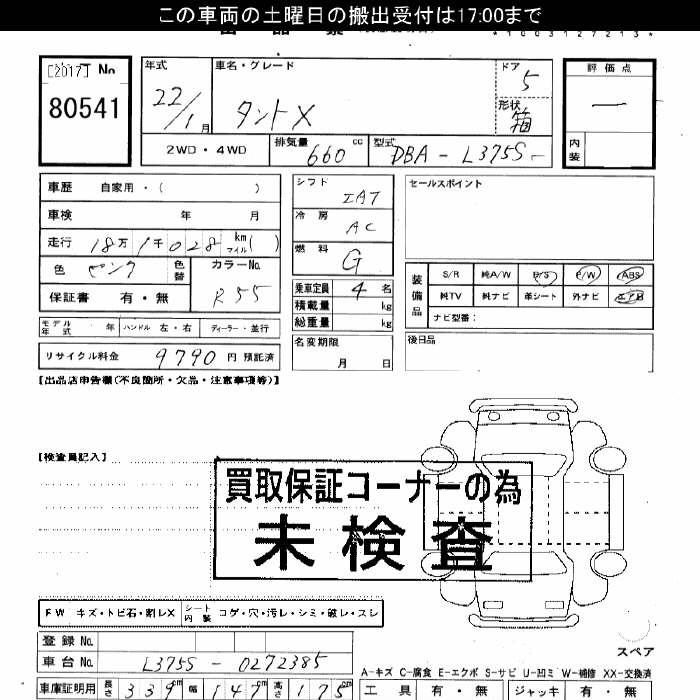 この車両の土曜日の搬出受付は17:00まで
*1003127213*
[2017] No
80541
年式
22/1月
車名・グレード
タントX
ドア
5
形状
箱
評価点
—
内装
2WD・4WD
排気量
660 cc
型式
DBA-L375S-
車歴 自家用・( )
車検 年 月
走行 18万1千028 km マイル( )
色 ピンク 色替
カラーNo.
R55
保証書 有・無
モデル年式 年 ハンドル 左・右 ディーラー・並行
リサイクル料金 9790 円 預託済
シフト
IAT
冷房
AC
燃料
G
乗車定員 4 名
積載量 kg
総重量 kg
名変期限
月 日
セールスポイント
装備品
S/R 純A/W P/S P/W ABS
純TV 純ナビ 革シート 外ナビ エアB
ナビ型番:
後日品
【出品店申告欄(不良箇所・欠品・注意事項等)】
【検査員記入】
買取保証コーナーの為
未検査
FW キズ・トビ石・割レX シート内装 コゲ・穴・汚レ・シミ・破レ・スレ
登録No.
車台No. L375S-0272385
車庫証明用 長さ 339cm 幅 147cm 高さ 175cm
スペア
A-キズ C-腐食 E-エクボ S-サビ U-凹ミ W-補修 XX-交換済
工具 有・無 ジャッキ 有・無